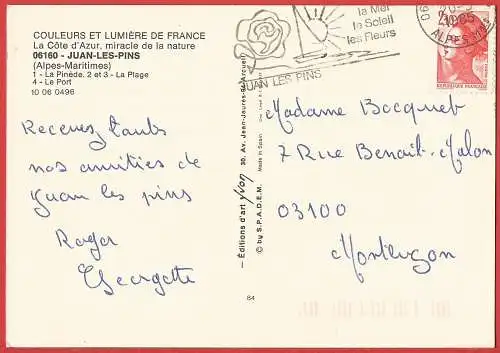 COULEURS ET LUMIÈRE DE FRANCE
La Côte d'Azur, miracle de la nature
06160 - JUAN-LES-PINS
(Alpes-Maritimes)
1 - La Pinède. 2 et 3 - La Plage
4 - Le Port
10 06 0496
Recevez toutes
nos amitiés de
Juan les pins
Roger
Georgette
la Mer
le Soleil
les Fleurs
JUAN LES PINS
1985
ALPES MMES
Éditions d'art Yvon
30, Av. Jean-Jaurès
Made in Spain
© by S.P.A.D.E.M.
84
Madame Bocquet
7 Rue Benoit-Malon
03100
Montluçon